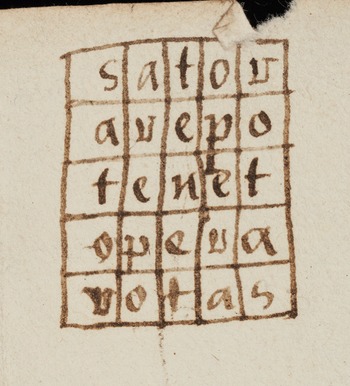 s a t o r
a r e p o
t e n e t
o p e r a
r o t a s